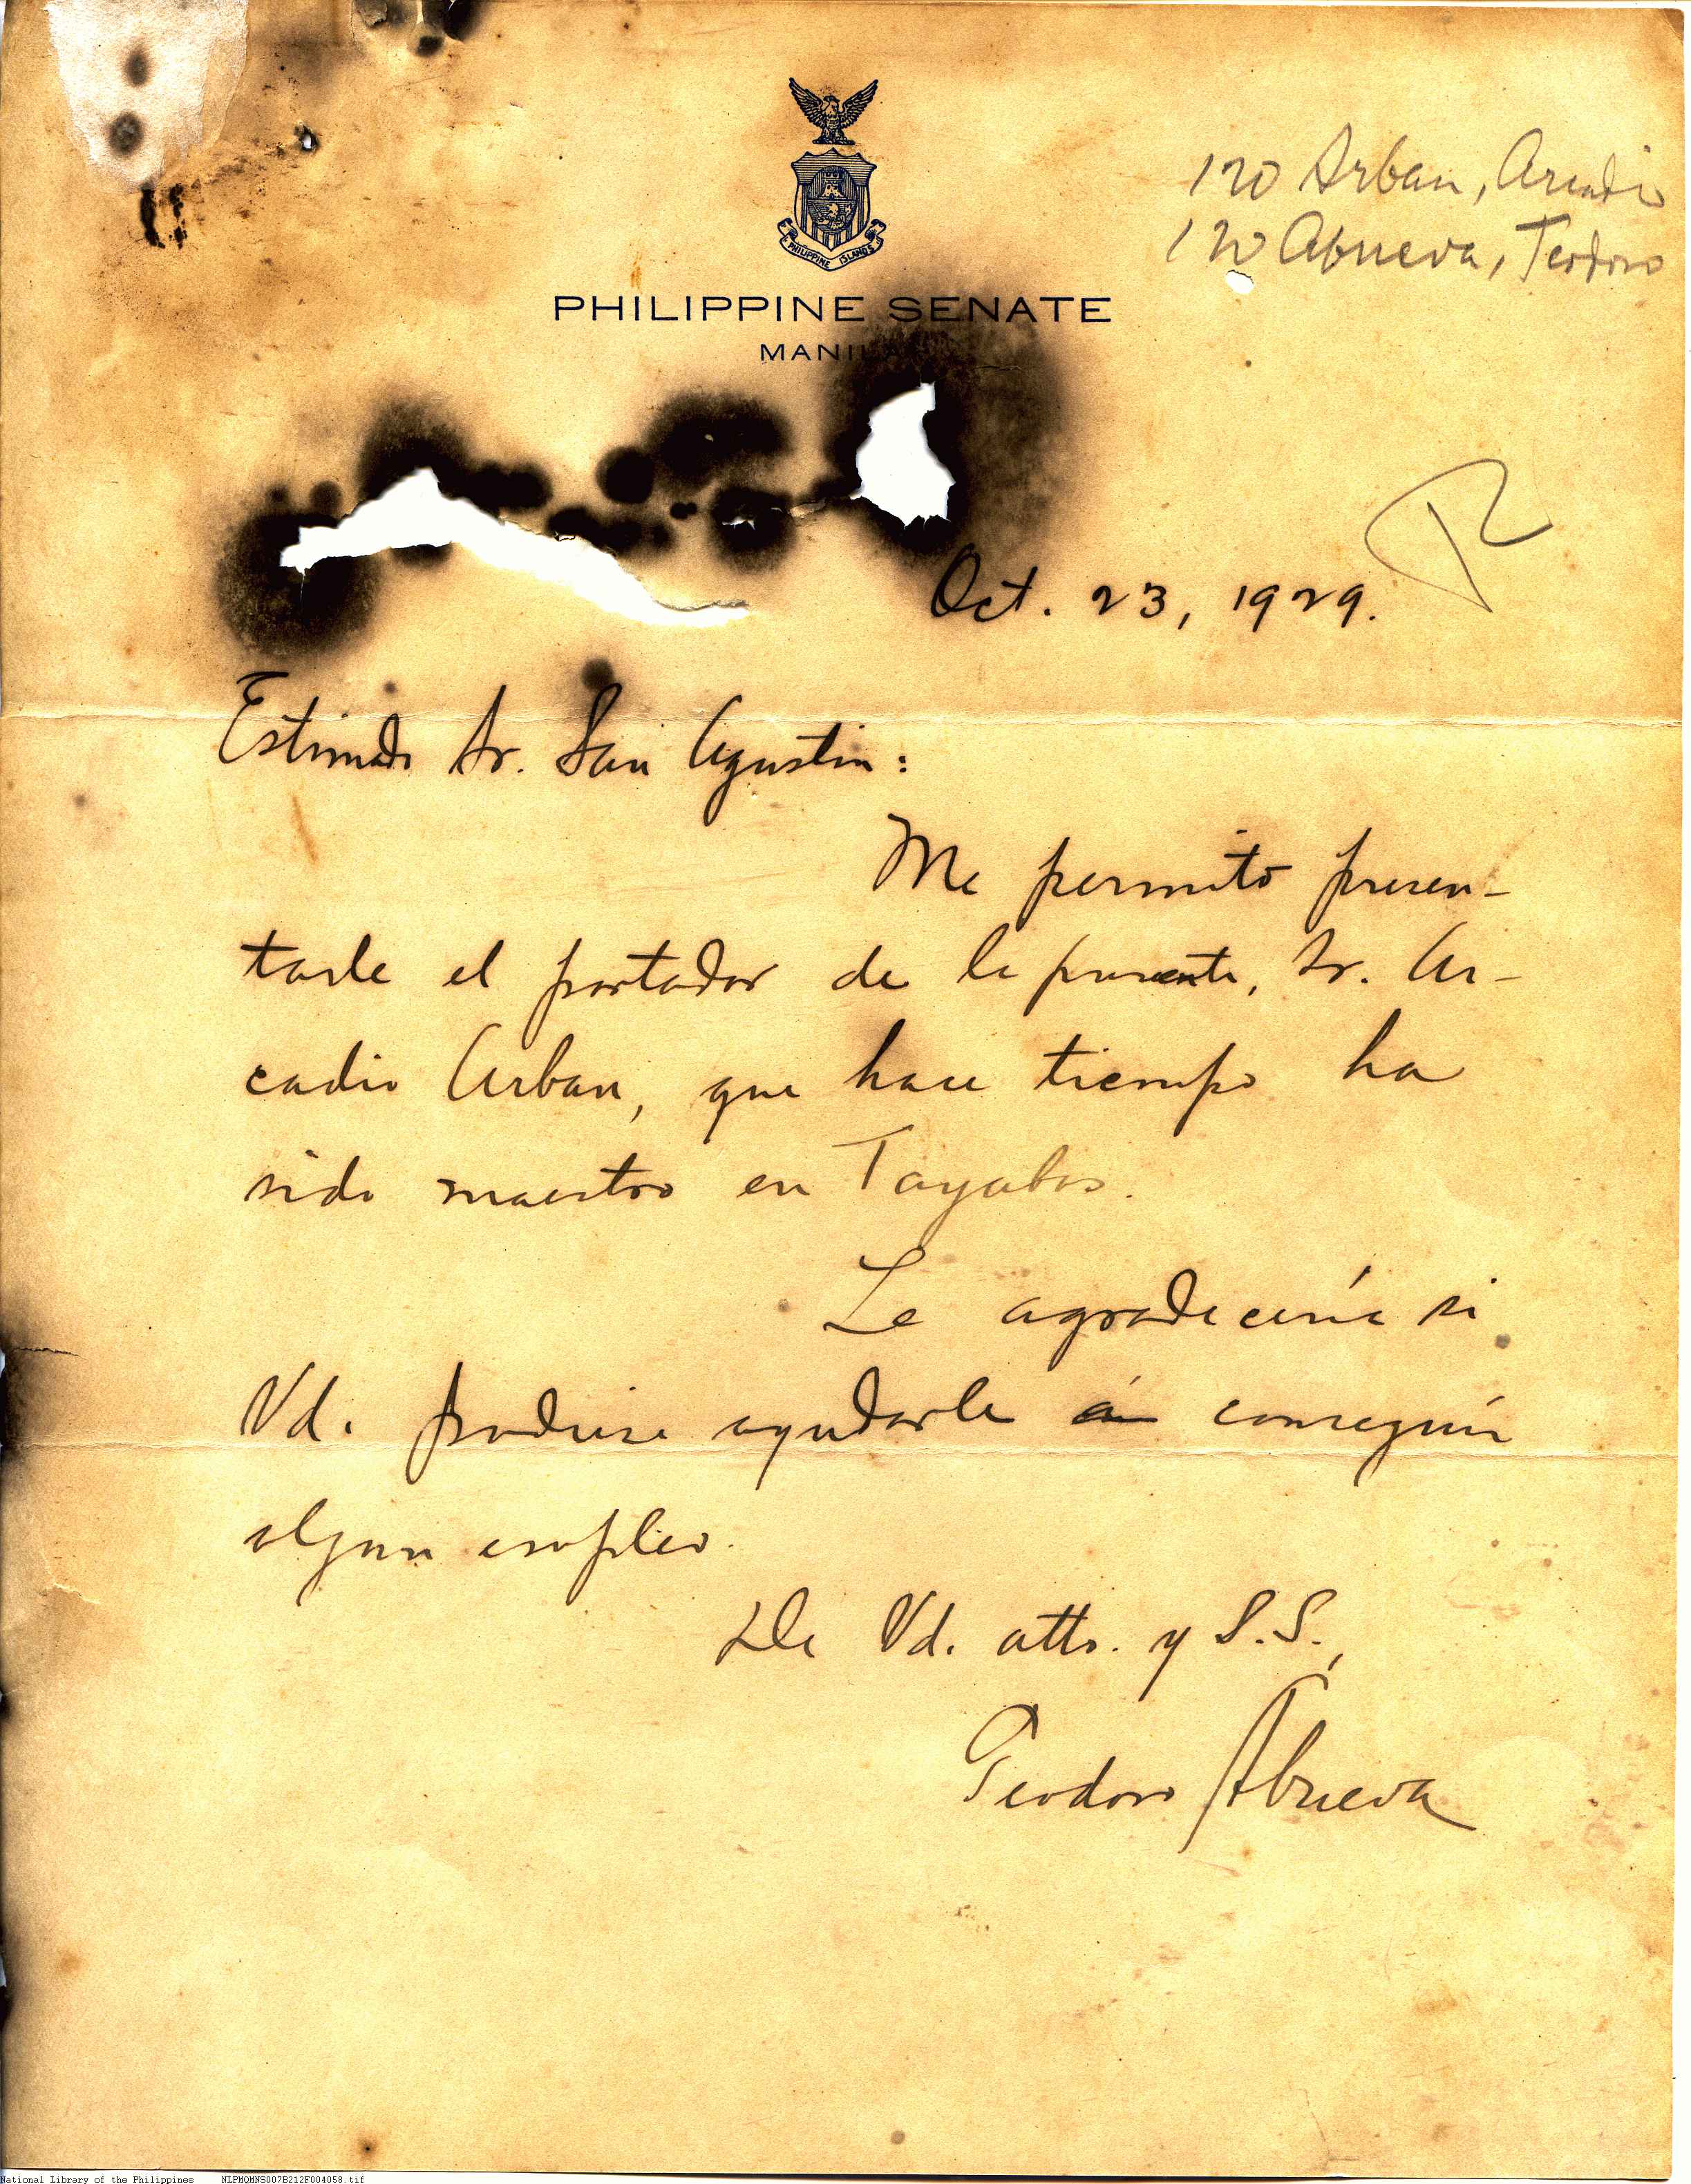 120 Arban, Arcadio
120 Abueva, Teodoro
PHILIPPINE ISLANDS
PHILIPPINE SENATE
MANILA
R
Oct. 23, 1929.
Estimado Sr. San Agustin:
Me permito presen-
tarle el portador de la presente, Sr. Ar-
cadio Arban, que hace tiempo ha
sido maestro en Tayabas.
Le agradecería si
Vd. pudiese ayudarle á conseguir
algun empleo.
De Vd. atto. y S.S.,
Teodoro Abueva
National Library of the Philippines NLPMQMNS007B212F004058.tif